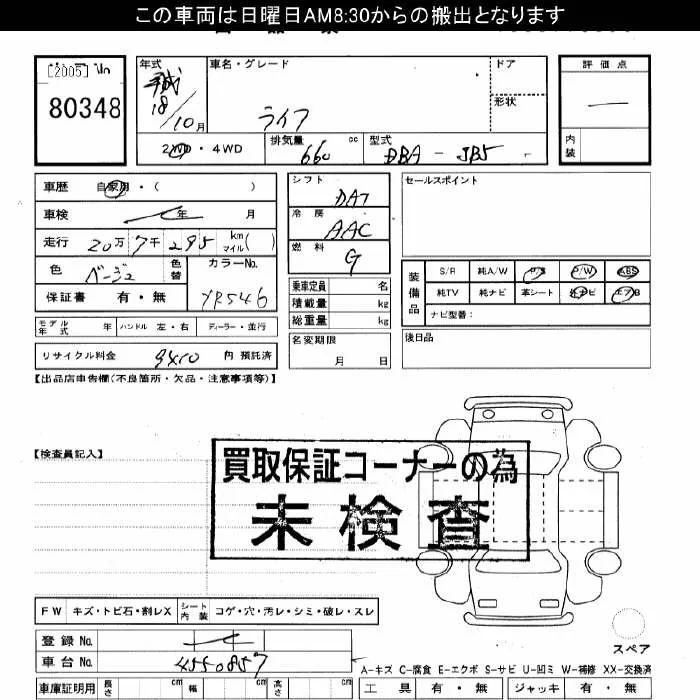 この車両は日曜日AM8:30からの搬出となります
[2005]
80348
年式
平成
18/10月
車名・グレード
ライフ
ドア
形状
評価点
―
内装
2WD・4WD
排気量
660 cc
型式
DBA-JB5
車歴 自家用・( )
車検 年 月
走行 20万7千295 km マイル( )
色 ベージュ 色替
カラーNo.
YR546
保証書 有・無
シフト DAT
冷房 AAC
燃料 G
乗車定員 名
積載量 kg
総重量 kg
名変期限
月 日
セールスポイント
装備品
S/R 純A/W P/S P/W ABS
純TV 純ナビ 革シート 社ナビ エアB
ナビ型番:
後日品
モデル年式 年 ハンドル 左・右 ディーラー・並行
リサイクル料金 9410 円 預託済
【出品店申告欄(不良箇所・欠品・注意事項等)】
【検査員記入】
買取保証コーナーの為
未検査
FW キズ・トビ石・割レX シート内装 コゲ・穴・汚レ・シミ・破レ・スレ
登録No.
車台No. 4550857
スペア
A-キズ C-腐食 E-エクボ S-サビ U-凹ミ W-補修 XX-交換済
車庫証明用 長さ cm 幅 cm 高さ cm
工具 有・無 ジャッキ 有・無